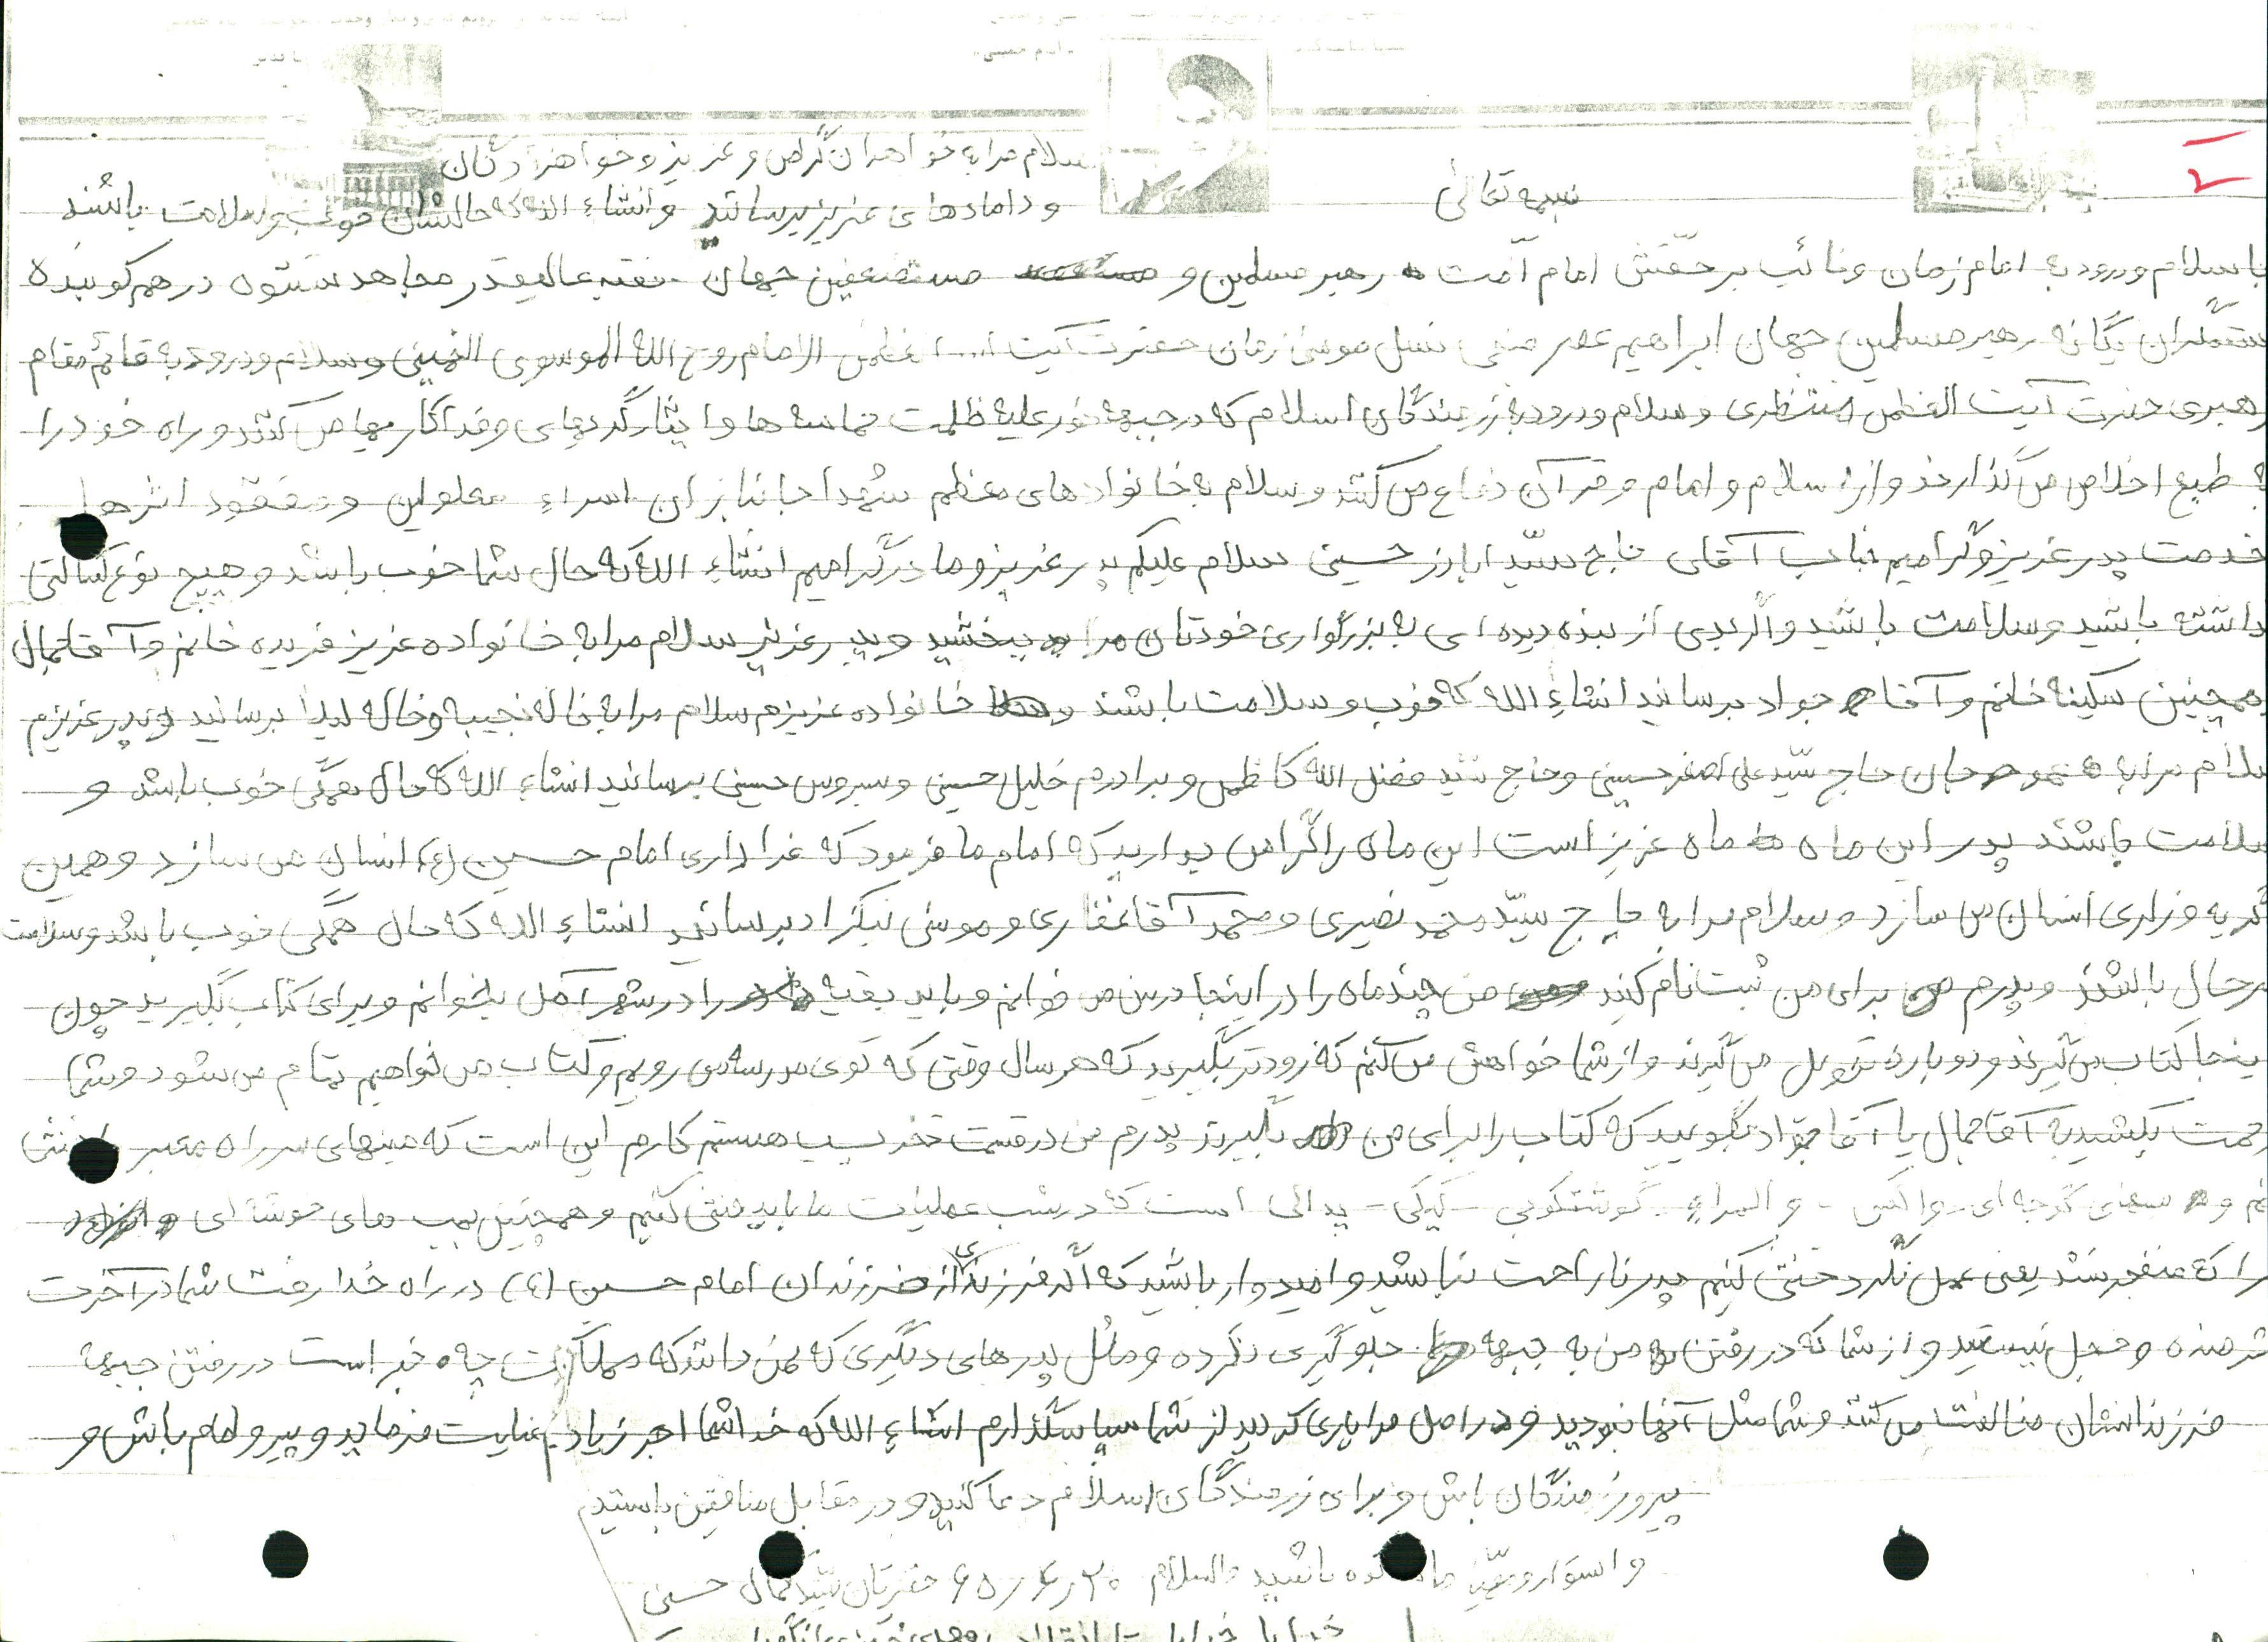 سلام مرا به خواهران گرامی و عزیز و خواهرزادگان
بسمه تعالی
و دامادهای عزیز برسانید و انشاء الله که حالشان خوب و سلامت باشند
با سلام و درود به امام زمان و نائب بر حقش امام امت رهبر مسلمین و مستضعفین جهان فقیه عالیقدر مجاهد نستوه در هم کوبنده
ستمگران یگانه رهبر مسلمین جهان ابراهیم عصر نسل موسی زمان حضرت آیت ا... اعظمی الامام روح الله الموسوی الخمینی و سلام و درود به قائم مقام
رهبری حضرت آیت العظمی منتظری و سلام و درود به رزمندگان اسلام که در جبهه نور علیه ظلمت حماسه ها و ایثارگریهای و فداکاریها می کنند و راه خود را
به طبع اخلاص می گذارند و از اسلام و امام و قرآن دفاع می کنند و سلام به خانوادهای معظم شهدا جانبازان اسراء معلولین و مفقود اثرها
خدمت پدر عزیز و گرامیم جناب آقای حاج سید اباذر حسینی سلام علیکم پدر عزیز و مادر گرامیم انشاء الله که حال شما خوب باشد و هیچ نوع کسالتی
داشته باشید و سلامت باشید و اگر بدی از بنده دیده ای به بزرگواری خودتان مرا ببخشید و پدر عزیز سلام مرا به خانواده عزیز فریده خانم و آقا جمال
همچنین سکینه خانم و آقا جواد برسانید انشاء الله که خوب و سلامت باشند و خانواده عزیزم سلام مرا به خاله نجیبه و خاله لیلا برسانید و پدر عزیزم
سلام مرا به عمو جان حاج سید علی اصغر حسینی و حاج سید فضل الله کاظمی و برادرم خلیل حسینی و سیروس حسینی برسانید انشاء الله که حال همگی خوب باشد و
سلامت باشند پدر این ماه ماه عزیز است این ماه را گرامی بدارید که امام ما فرمود که عزاداری امام حسین (ع) انسان می سازد و همین
گریه و زاری انسان می سازد و سلام مرا به حاج سید محمد نصیری و محمد آقا غفاری و موسی نیکزاد برسانید انشاء الله که حال همگی خوب باشد و سلامت
سرحال باشند و پدرم برای من ثبت نام کنید من چند ماه را در اینجا درس می خوانم و باید بقیه را در شهر آمل بخوانم و برای کتاب بگیرید چون
اینجا کتاب می گیرند و دوباره تحویل می گیرند و از شما خواهش می کنم که زودتر بگیرید که هر سال وقتی که توی مدرسه می رویم و کتاب می خواهیم تمام می شود و شما
زحمت بکشید به آقا جمال یا آقا جواد بگویید که کتاب را برای من بگیرند پدرم من در قسمت تخریب هستم کارم این است که مینهای سر راه معبر خنثی
کنم و مینهای گوجه ای - والکس - و المراء - گوشتکوبی - کیکی - پدالی است که در شب عملیات ما باید خنثی کنیم و همچنین بمب های خوشه ای
را که منفجر نشد یعنی عمل نکرد خنثی کنیم پدر ناراحت نباشید و امیدوار باشید که اگر فرزندی از فرزندان امام حسین (ع) در راه خدا رفت شما در آخرت
شرمنده و خجل نیستید و از شما که در رفتن من به جبهه جلوگیری نکرده و مثل پدرهای دیگری که نمی داند که مملکت چه خبر است در رفتن جبهه
فرزندانشان مخالفت می کنند و شما مثل آنها نبودید و در اصل مرا یاری کردید از شما سپاسگذارم انشاء الله که خدا شما اجر زیاد عنایت فرماید و پیرو امام باش و
پیرو رزمندگان باش و برای رزمندگان اسلام دعا کنید و در مقابل منافقین باستید
و استوار و باشید والسلام ۶۵/۴/۲۰ سید کمال حسینی
خدایا خدایا تا انقلاب مهدی